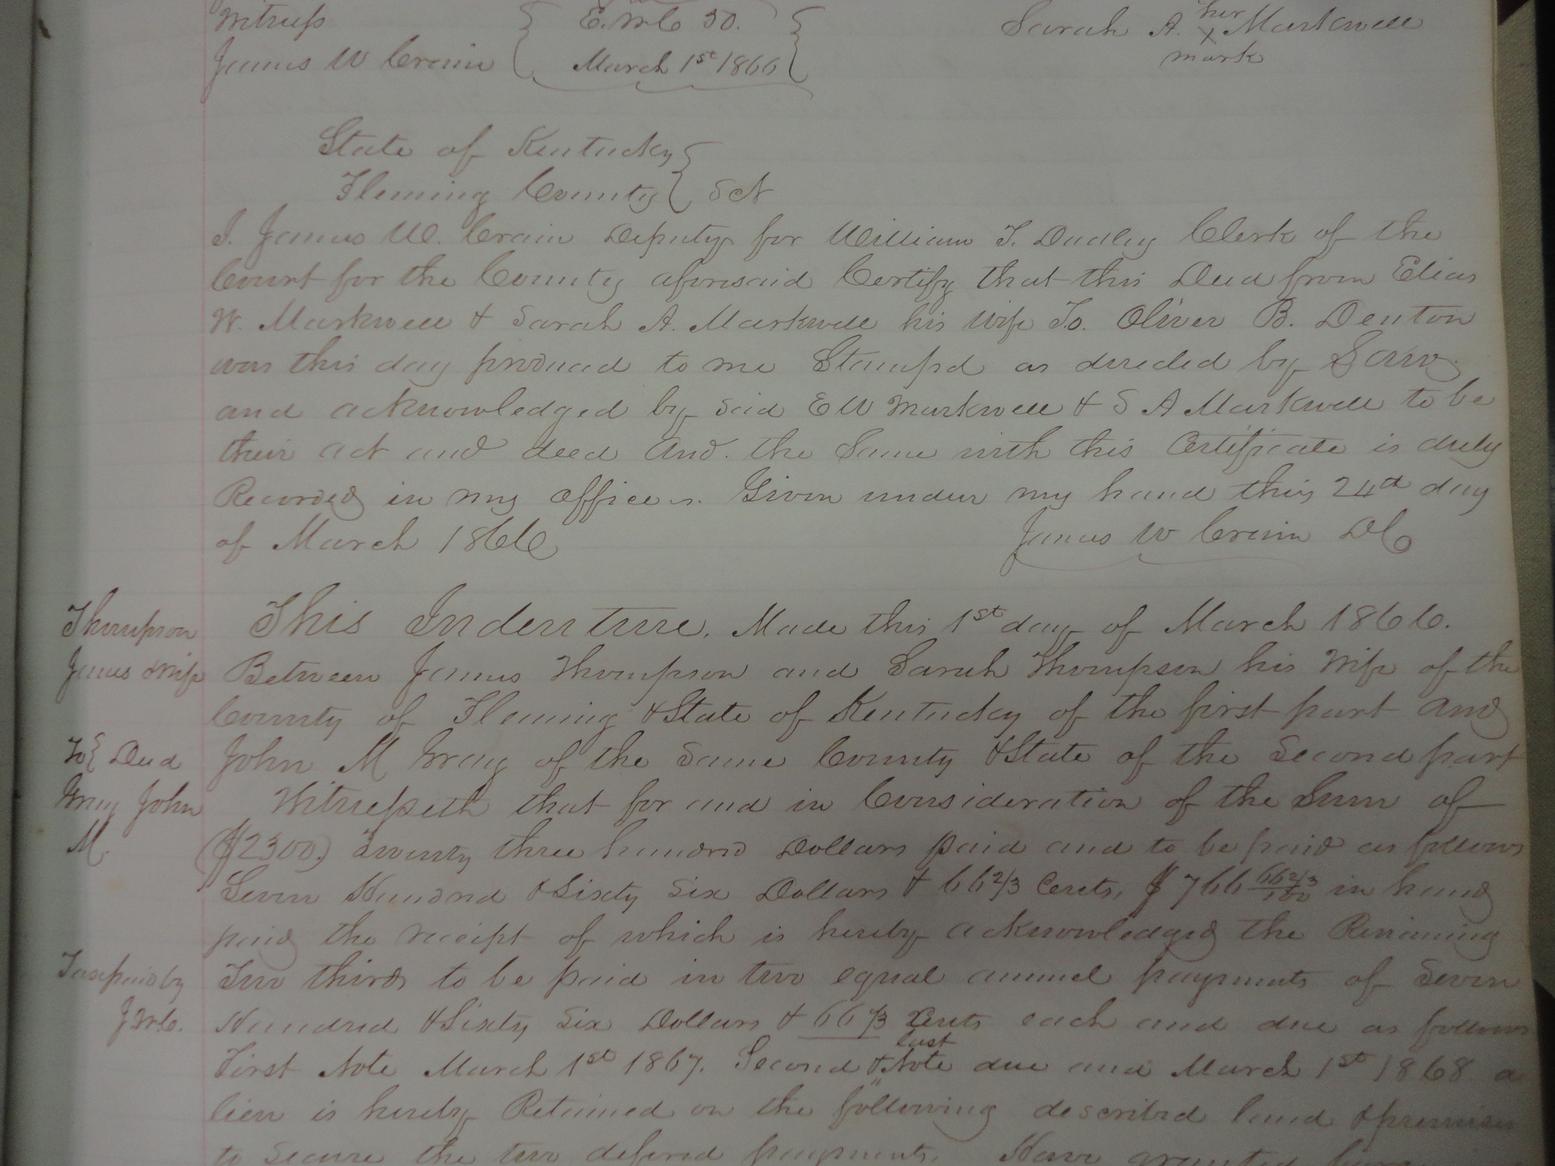 Witness { E.W.C 50. } Sarah A. her x mark Markwell
James W Crain { March 1st 1866 }
State of Kentucky }
Fleming County } Sct
I. James W. Crain Deputy for William T. Dudley Clerk of the
Court for the County aforesaid Certify that this Deed from Elias
W. Markwell & Sarah A. Markwell his wife To. Oliver B. Denton
was this day produced to me Stampd as directed by Law
and acknowledged by said E W Markwell & S A Markwell to be
their act and deed And. the Same with this Certificate is duly
Recorded in my office. Given under my hand this 24th day
of March 1866 James W Crain DC
This Indenture. Made this 1st day of March 1866.
Between James Thompson and Sarah Thompson his Wife of the
County of Fleming & State of Kentucky of the first part and
John M Gray of the Same County & State of the Second part
Witnesseth that for and in Consideration of the Sum of
($2300) Twenty three hundrd Dollars paid and to be paid as follows
Seven Hundrd & Sixty Six Dollars & 66 2/3 Cents, $766 66 2/3/100 in hand
paid the receipt of which is hereby acknowledged the Remaining
Two thirds to be paid in two equal annual payments of Seven
Hundred & Sixty Six Dollars & 66 2/3 Cents each and due as follows
First Note March 1st 1867. Second & last Note due and March 1st 1868 a
lien is hereby Retained on the following described land & premises
to Secure the two defered payments. Have granted
Thompson
James & Wife
To } Deed
Gray John
M.
Tax paid by
J.W.C.